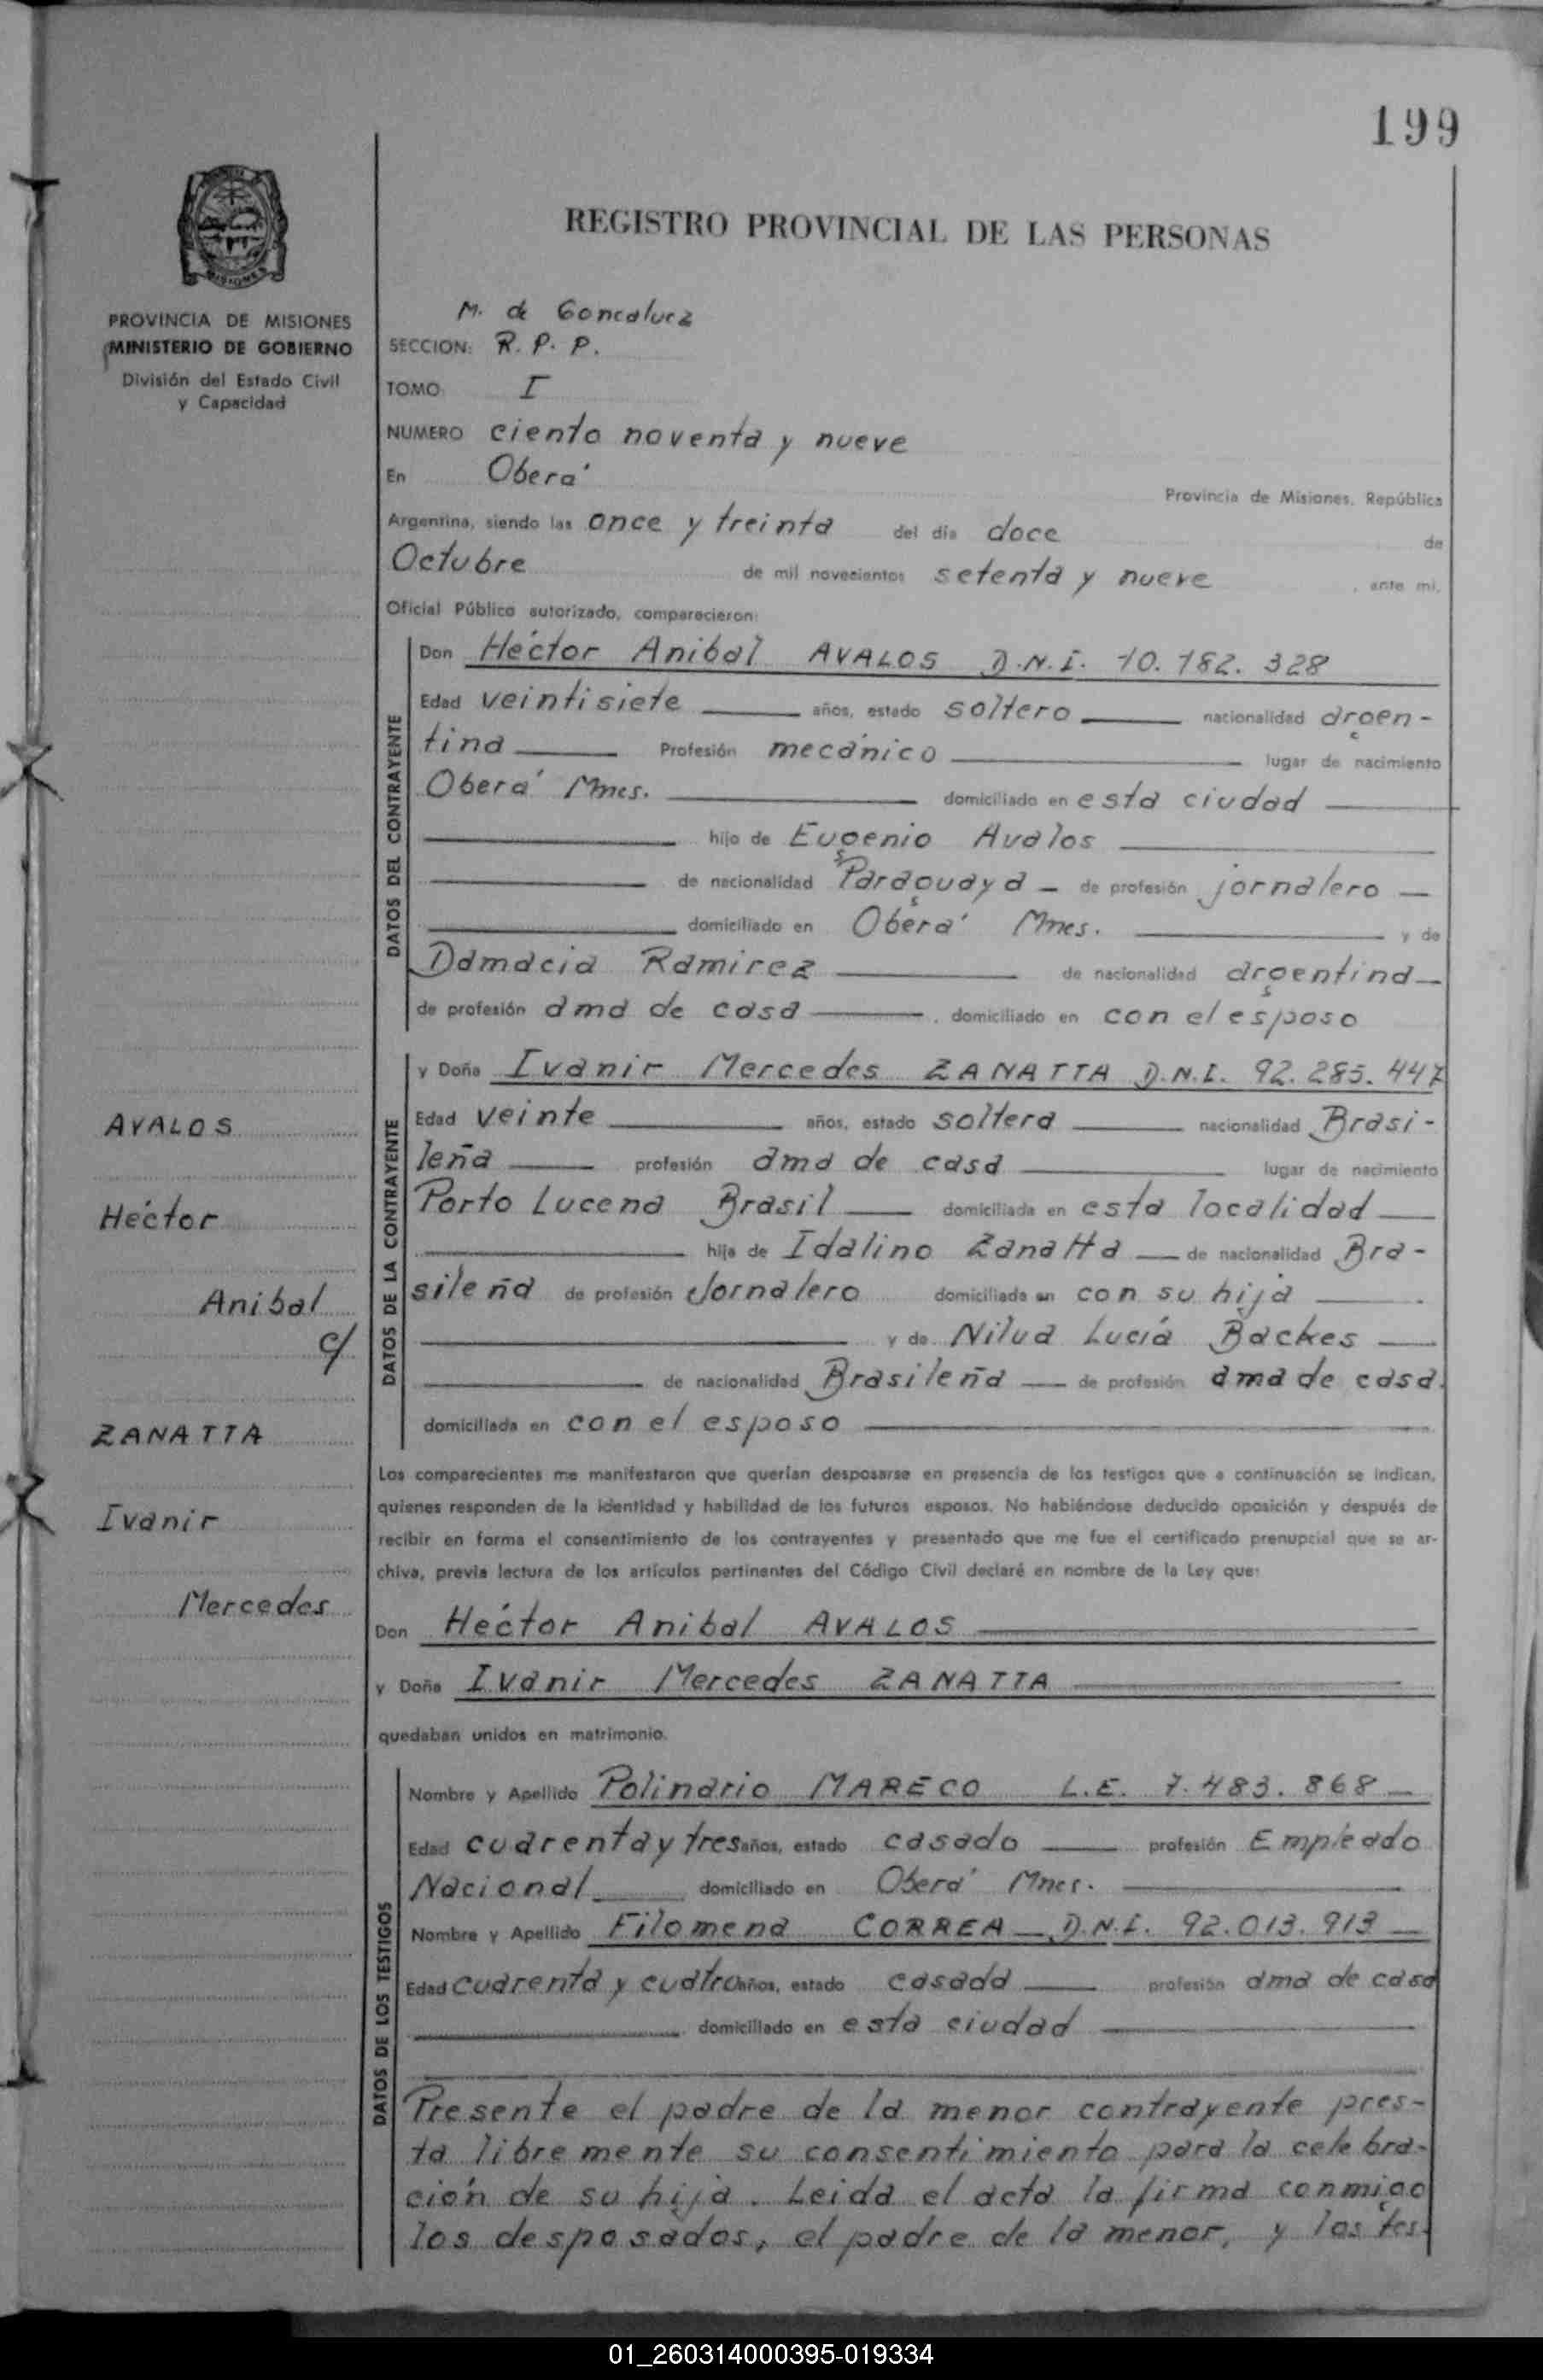 199
REGISTRO PROVINCIAL DE LAS PERSONAS
MISIONES
PROVINCIA DE MISIONES
MINISTERIO DE GOBIERNO
División del Estado Civil
y Capacidad
M. de Goncalvez
SECCION: R. P. P.
TOMO I
NUMERO ciento noventa y nueve
En Oberá
Provincia de Misiones, República
Argentina, siendo las once y treinta del día doce de
Octubre de mil novecientos setenta y nueve, ante mi,
Oficial Público autorizado, comparecieron:
DATOS DEL CONTRAYENTE
Don Héctor Anibal AVALOS D.N.I. 10.182.328
Edad veintisiete años, estado soltero nacionalidad argen-
tina Profesión mecánico lugar de nacimiento
Oberá Mnes. domiciliado en esta ciudad
hijo de Eugenio Avalos
de nacionalidad Paraguaya - de profesión jornalero
domiciliado en Oberá Mnes. y de
Damacia Ramirez de nacionalidad argentina
de profesión ama de casa, domiciliado en con el esposo
DATOS DE LA CONTRAYENTE
y Doña Ivanir Mercedes ZANATTA D.N.I. 92.285.447
Edad veinte años, estado soltera nacionalidad Brasi-
leña profesión ama de casa lugar de nacimiento
Porto Lucena Brasil domiciliada en esta localidad
hija de Idalino Zanatta de nacionalidad Bra-
sileña de profesión Jornalero domiciliado en con su hija
y de Nilva Lucía Backes
de nacionalidad Brasileña de profesión ama de casa.
domiciliada en con el esposo
AVALOS
Héctor
Anibal
c/
ZANATTA
Ivanir
Mercedes
Los comparecientes me manifestaron que querían desposarse en presencia de los testigos que a continuación se indican,
quienes responden de la identidad y habilidad de los futuros esposos. No habiéndose deducido oposición y después de
recibir en forma el consentimiento de los contrayentes y presentado que me fue el certificado prenupcial que se ar-
chiva, previa lectura de los artículos pertinentes del Código Civil declaré en nombre de la Ley que:
Don Héctor Anibal AVALOS
y Doña Ivanir Mercedes ZANATTA
quedaban unidos en matrimonio.
DATOS DE LOS TESTIGOS
Nombre y Apellido Polinario MARECO L.E. 7.483.868
Edad cuarenta y tres años, estado casado profesión Empleado
Nacional domiciliado en Oberá Mnes.
Nombre y Apellido Filomena CORREA D.N.I. 92.013.913
Edad cuarenta y cuatro años, estado casada profesión ama de casa
domiciliado en esta ciudad
Presente el padre de la menor contrayente pres-
ta libremente su consentimiento para la celebra-
ción de su hija. Leida el acta la firma conmigo
los desposados, el padre de la menor, y los tes-
01_260314000395-019334